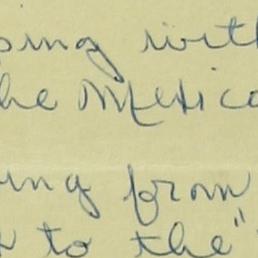 ping with
he Mexica
ing from
to the "